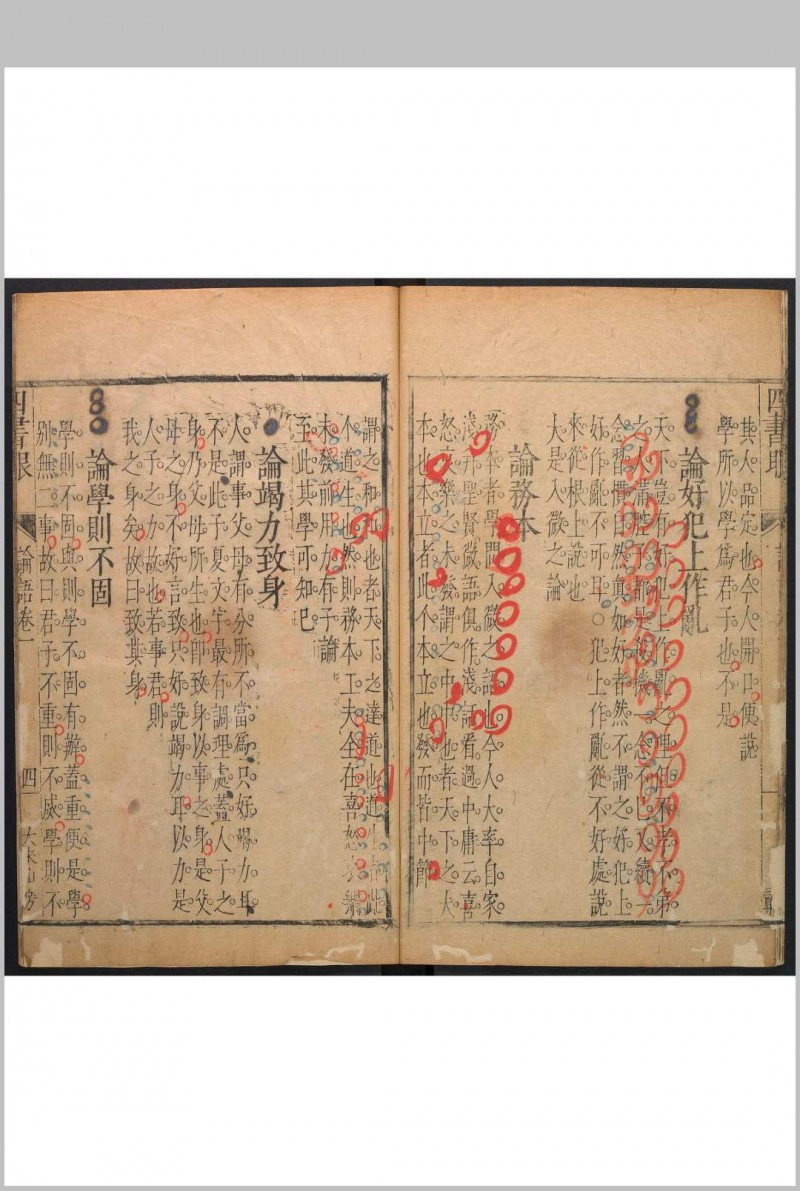 四書眼
其人品定也今人開口便說
學所以學爲君子也不是
論好犯上作亂
天下豈有好犯上作亂之理但不孝不弟
之人滿腔子都是殺機一念不已又續一
念習慣自然真如好者然不謂之好犯上
好作亂不可耳○犯上作亂從不好處說
來從根上說也
大是入微之論
論務本
務本者學問入微之語也今人大率自家
淺并聖賢微語俱作淺話看過中庸云喜
怒哀樂之未發謂之中中也者天下之大
本也本立者此个本立也發而皆中節
謂之和和也者天下之達道也道生者此
个道生也然則務本工夫全在喜怒哀樂
未發前用力有子論
至此其學可知已
論竭力致身
人謂事父母有分所不當爲只好竭力耳
不是此子夏文字最有調理處蓋人子之
身乃父母所生也卽致身以事之身是父
母之身不好言致只好說竭力耳以力是
人子之力故也若事君則
我之身矣故曰致其身
論學則不固
學則不固與則學不固有辦蓋重便是學
別無二事故曰君子不重則不威學則不
四書眼
論語卷一
四
大來山房